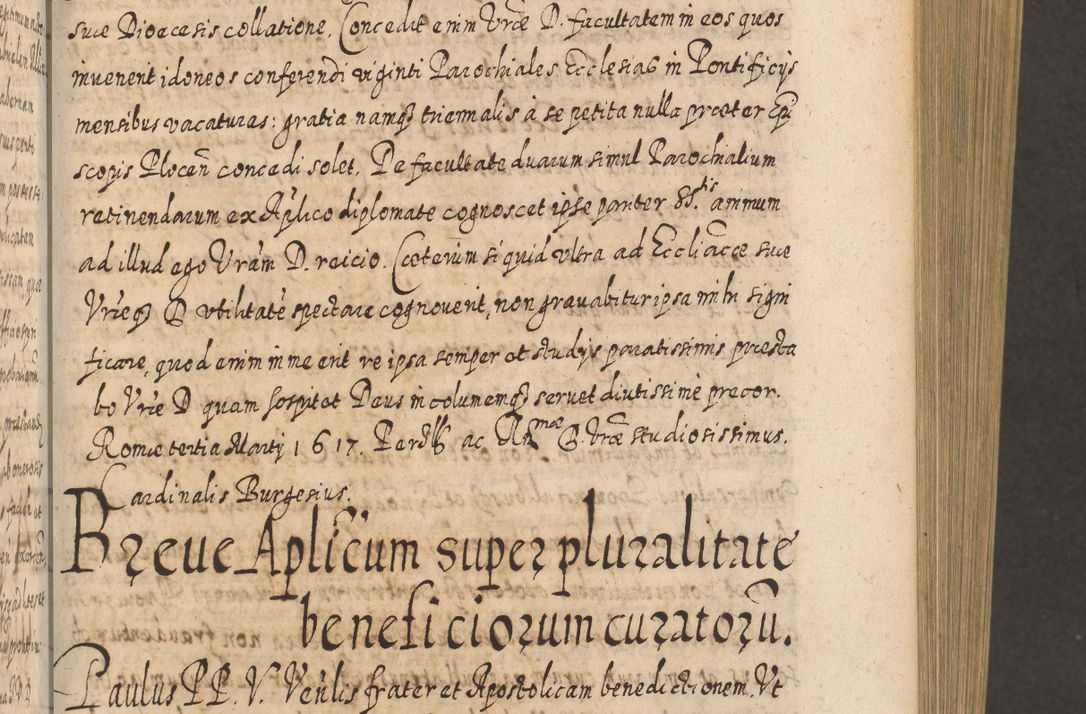 suæ Dioecesis collatione. Concedit enim Vræ D. facultatem in eos quos
invenerit idoneos conferendi viginti Parochiales Ecclesias in Pontificijs
mensibus vacaturas: gratia namq3 triennalis à se petita nulla præter Epi
scopis Plocen̄ concedi solet. De facultate duarum simul Parochialium
retinendarum ex Aplico diplomate cognoscet ipse pariter SS.tis animum
ad illud ego Vram D. reicio. Cæterum si quid vltra ad Eccliæ suæ
Vræq3 D vtilitatē spectare cognouerit, non grauabitur ipsa mihi signi
ficare, quod enim in me erit re ipsa semper et studijs paratissimis præsta
bo Vræ D quam sospitet Deus incolumemq3 seruet diutissimè precor.
Romæ tertia Martij 1617. Perdllis ac Rmæ D. Vræ studiosissimus.
Cardinalis Burgesius.
Breue Aplicum super pluralitate
beneficiorum curatorū.
Paulus PP. V. Venlis frater et Apostolicam benedictionem. Vt